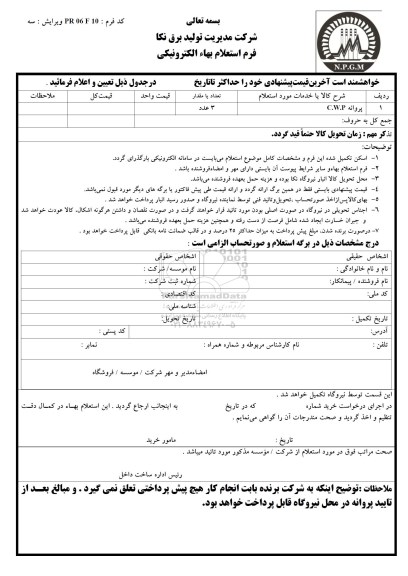 بسمه تعالی
کد فرم : PR 06 F 10 ویرایش : سه
شرکت مدیریت تولید برق نکا
فرم استعلام بهاء الکترونیکی
N.P.G.M
خواهشمند است آخرین‌قیمت‌پیشنهادی خود را حداکثر تاتاریخ درجدول ذیل تعیین و اعلام فرمائید .
ردیف شرح کالا یا خدمات مورد استعلام تعداد یا مقدار قیمت واحد قیمت‌کل ملاحظات
۱ پروانه C.W.P ۳ عدد
جمع کل به حروف:
تذکر مهم : زمان تحویل کالا حتماً قید گردد.
توضیحات:
۱- اسکن تکمیل شده این فرم و مشخصات کامل موضوع استعلام می‌بایست در سامانه الکترونیکی بارگذاری گردد.
۲- فرم استعلام بهاءو سایر شرایط پیوست آن بایستی دارای مهر و امضاءفروشنده باشد .
۳- محل تحویل کالا انبار نیروگاه نکا بوده و هزینه حمل بعهده فروشنده می‌باشد.
۴- قیمت پیشنهادی بایستی فقط در همین برگه ارائه گردد و ارائه قیمت طی پیش فاکتور یا برگه های دیگر مورد قبول نمی‌باشد.
۵- بهای‌کالاپس‌ازاخذ صورتحساب ،تحویل‌وتائید فنی توسط نماینده نیروگاه و صدور رسید انبار پرداخت خواهد شد .
۶- اجناس تحویلی در نیروگاه در صورت اصلی بودن مورد تائید قرار خواهند گرفت و در صورت نقصان و داشتن هرگونه اشکال، کالا عودت خواهد شد
و جبران خسارت ایجاد شده شامل فرصت از دست رفته و همچنین هزینه حمل بعهده فروشنده می‌باشد .
۷- درصورت برنده شدن، مبلغ پیش پرداخت به میزان حداکثر ۲۵ درصد و در قالب ضمانت نامه بانکی قابل پرداخت خواهد بود .
درج مشخصات ذیل در برگه استعلام و صورتحساب الزامی است :
اشخاص حقیقی اشخاص حقوقی
نام و نام خانوادگی : نام موسسه/ شرکت :
نام فروشنده / پیمانکار: شماره ثبت شرکت :
کد ملی: کد اقتصادی:
شناسه ملی:
تاریخ تکمیل : تاریخ تحویل:
آدرس: کد پستی :
تلفن : نام کارشناس مربوطه و شماره همراه : نمابر :
امضاءمدیر و مهر شرکت / موسسه / فروشگاه
این قسمت توسط نیروگاه تکمیل خواهد شد .
در اجرای درخواست خرید شماره که در تاریخ به اینجانب ارجاع گردید . این استعلام بهـاء در کمـال دقـت
تنظیم و اخذ گردید و صحت مندرجات آن را گواهی می‌نمایم .
تاریخ : مامور خرید
صحت مراتب فوق در مورد استعلام از شرکت / مؤسسه مذکور مورد تائید میباشد .
رئیس اداره ساخت داخل
ملاحظات :توضیح اینکه به شرکت برنده بابت انجام کار هیچ پیش پرداختی تعلق نمی گیرد . و مبالغ بعـد از
تایید پروانه در محل نیروگاه قابل پرداخت خواهد بود.